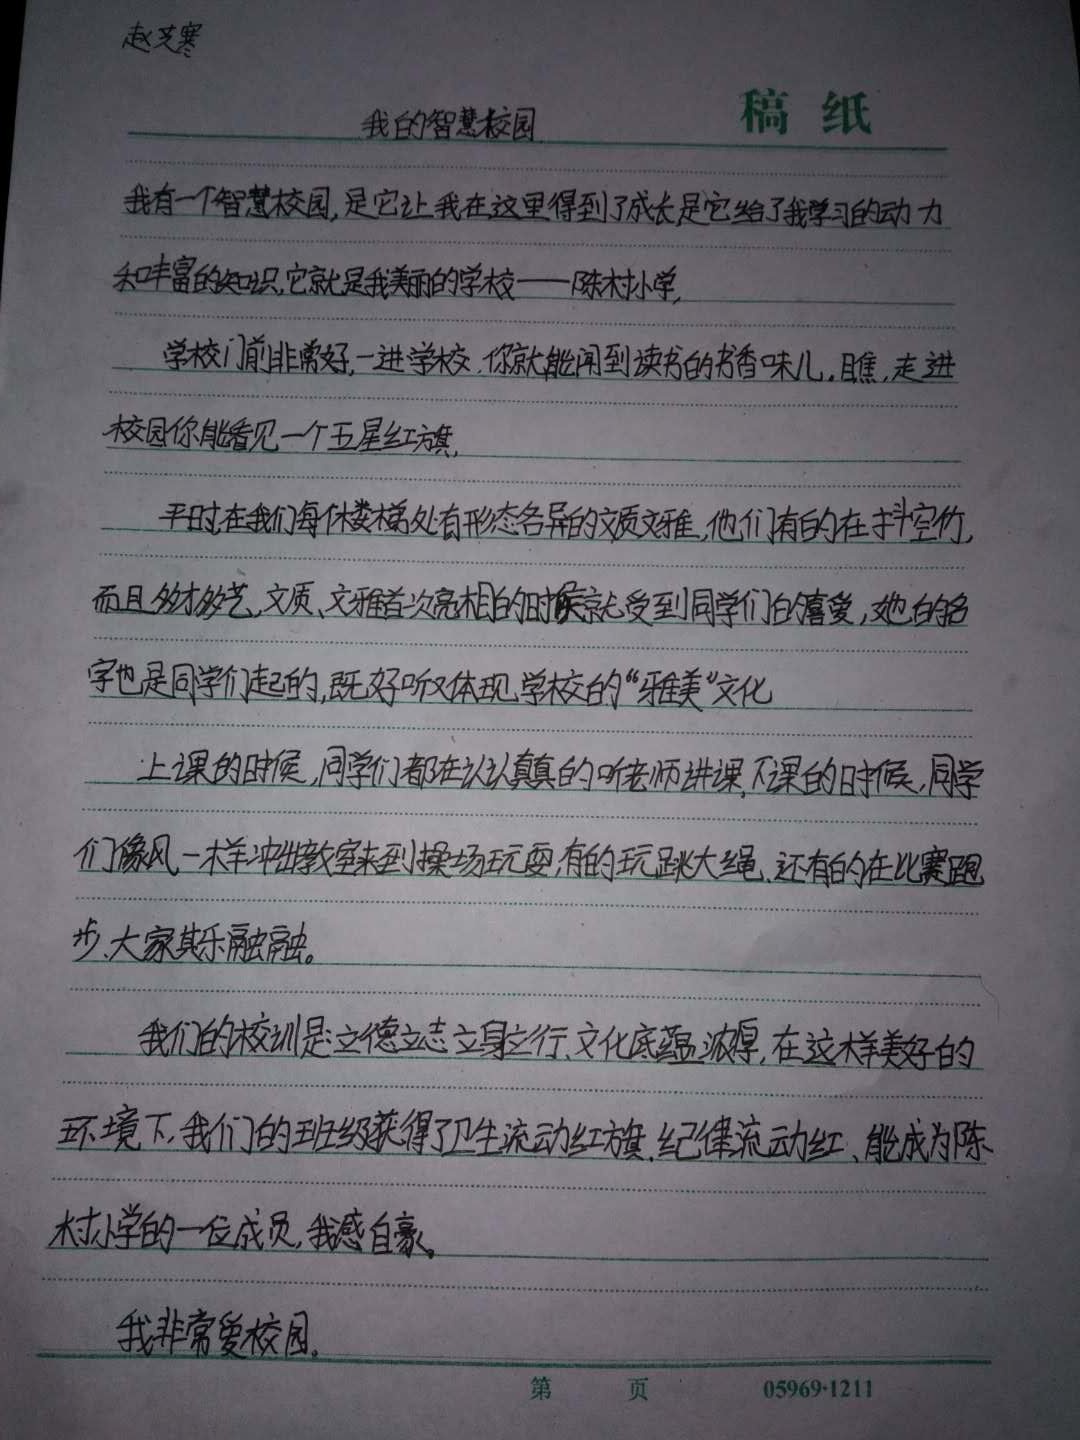 赵艾寒
稿纸
我的智慧校园
我有一个智慧校园,是它让我在这里得到了成长是它给了我学习的动力
和丰富的知识,它就是我美丽的学校——陈村小学,
学校门前非常好,一进学校,你就能闻到读书的书香味儿,瞧,走进
校园你能看见一个五星红旗,
平时在我们每个楼梯处有形态各异的文质文雅,他们有的在抖空竹,
而且多才多艺,文质、文雅首次亮相的时候就受到同学们的喜爱,她的名
字也是同学们起的,既好听又体现学校的“雅美”文化
上课的时候,同学们都在认认真真的听老师讲课,下课的时候,同学
们像风一样冲出教室来到操场玩耍,有的玩跳大绳、还有的在比赛跑
步、大家其乐融融。
我们的校训是:立德立志立身立行、文化底蕴浓厚,在这样美好的
环境下,我们的班级获得了卫生流动红旗、纪律流动红、能成为陈
村小学的一位成员,我感自豪。
我非常爱校园。
第 页 05969·1211